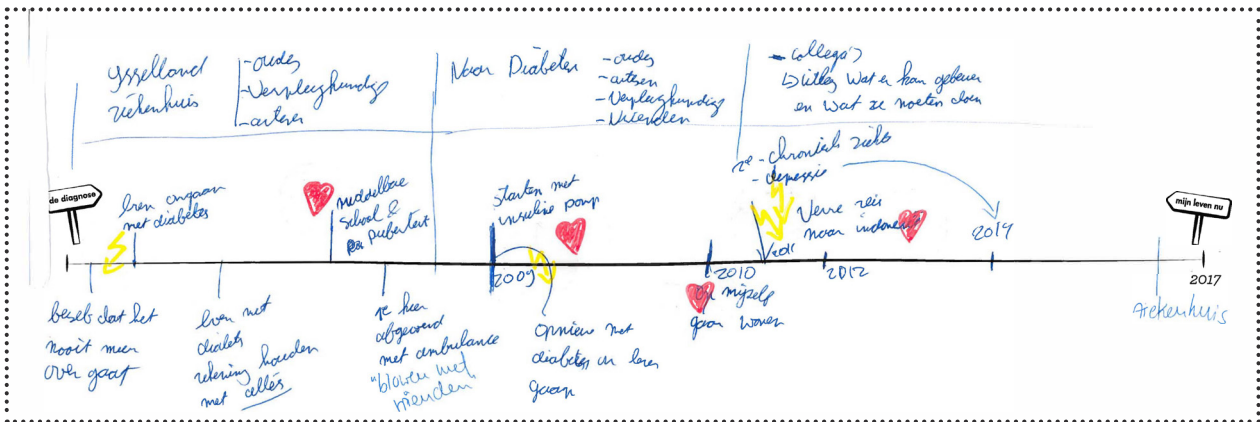 Ijsselland
ziekenhuis
- ouders
- Verpleegkundig
- artsen
Naar Diabeter
- ouders
- artsen
- Verpleegkundig
- Vrienden
- collega's
↳ uitleg wat er kan gebeuren
en wat ze moeten doen
2e - chronisch ziekte
- depressie
de diagnose
leren omgaan
met diabetes
middelbare
school &
pubertert
starten met
insuline pomp
Verre reis
naar indonesie
2014
mijn leven nu
2009
2010
2011
2012
2017
besef dat het
nooit meer
over gaat
leven met
diabetes
rekening houden
met alles
1e keer
afgevoerd
met ambulance
"blowen met
vrienden"
opnieuw met
diabetes om leren
gaan
op mijzelf
gaan wonen
ziekenhuis